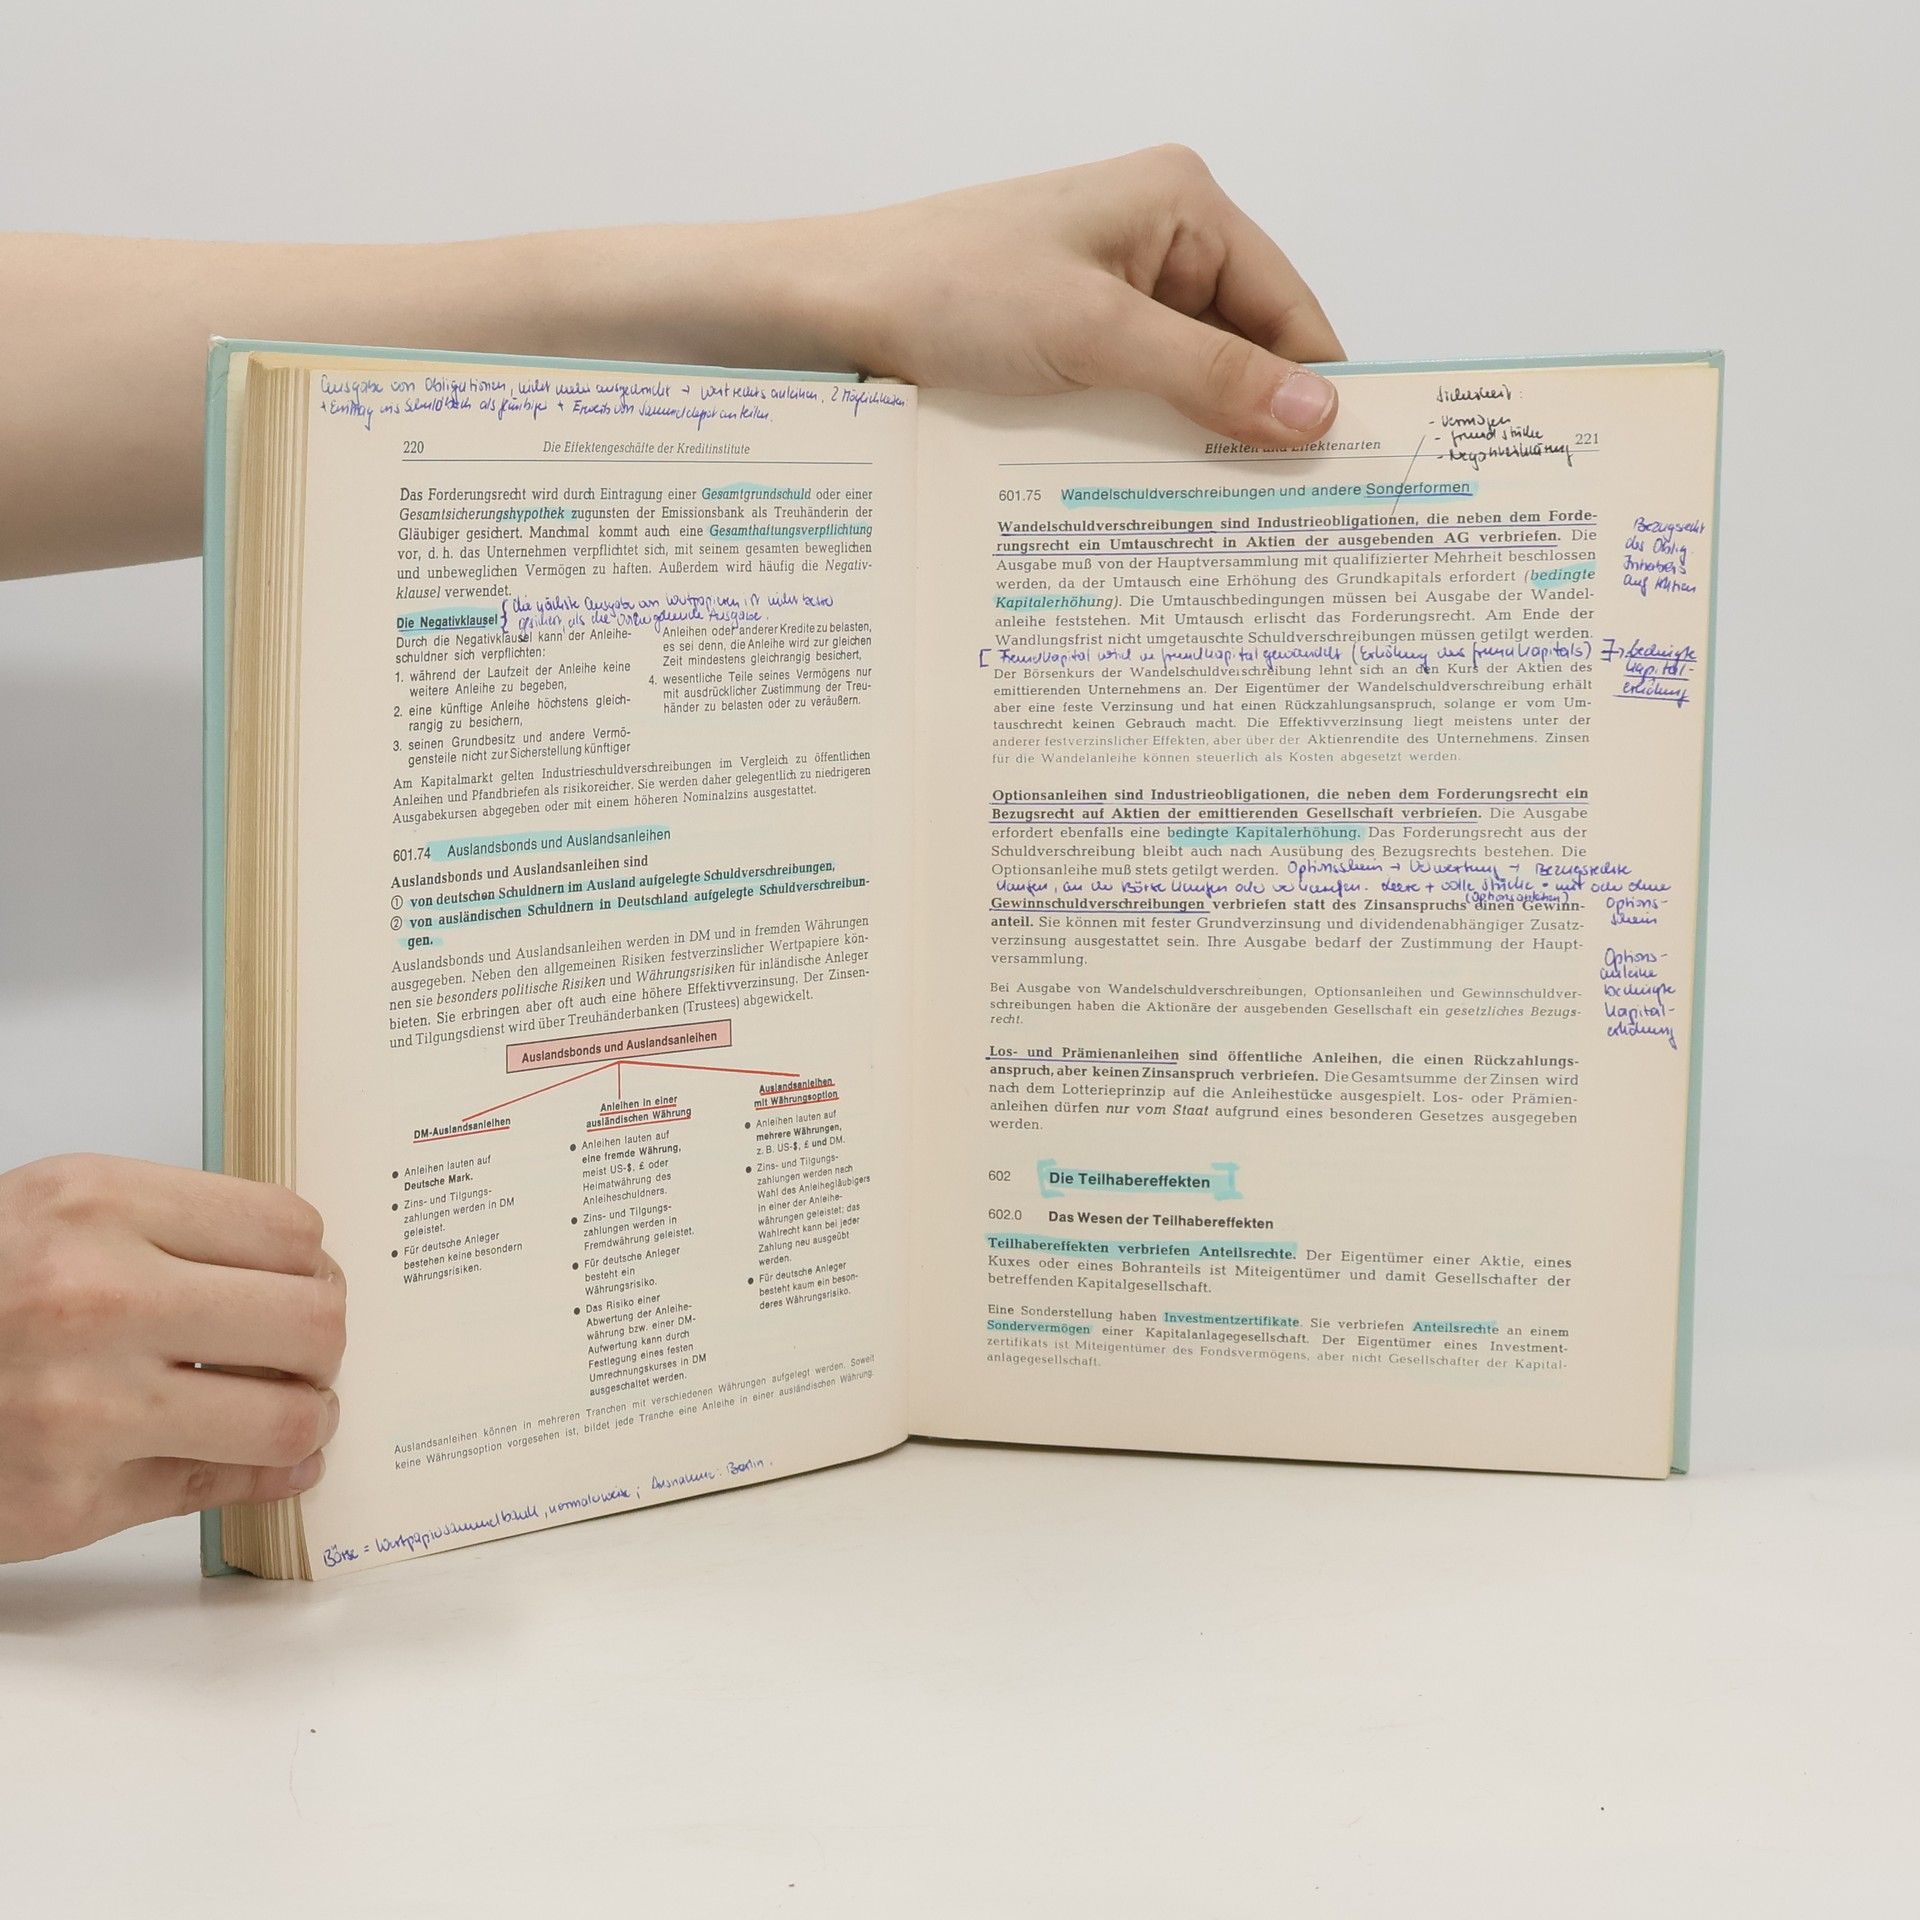 Ausgabe von Obligationen, nicht mehr ausgedruckt → Wertrechtsanleihen, 2 Möglichkeiten:
+ Eintrag ins Schuldbuch als Gläubiger + Erwerb von Sammeldepotanteilen.
220 Die Effektengeschäfte der Kreditinstitute
Das Forderungsrecht wird durch Eintragung einer Gesamtgrundschuld oder einer
Gesamtsicherungshypothek zugunsten der Emissionsbank als Treuhänderin der
Gläubiger gesichert. Manchmal kommt auch eine Gesamthaftungsverpflichtung
vor, d. h. das Unternehmen verpflichtet sich, mit seinem gesamten beweglichen
und unbeweglichen Vermögen zu haften. Außerdem wird häufig die Negativ-
klausel verwendet.
die nächste Ausgabe von Wertpapieren ist nicht besser
Die Negativklausel
gesichert, als die vorhergehende Ausgabe.
Durch die Negativklausel kann der Anleihe-
schuldner sich verpflichten:
1. während der Laufzeit der Anleihe keine
weitere Anleihe zu begeben,
2. eine künftige Anleihe höchstens gleich-
rangig zu besichern,
3. seinen Grundbesitz und andere Vermö-
gensteile nicht zur Sicherstellung künftiger
Anleihen oder anderer Kredite zu belasten,
es sei denn, die Anleihe wird zur gleichen
Zeit mindestens gleichrangig besichert,
4. wesentliche Teile seines Vermögens nur
mit ausdrücklicher Zustimmung der Treu-
händer zu belasten oder zu veräußern.
Am Kapitalmarkt gelten Industrieschuldverschreibungen im Vergleich zu öffentlichen
Anleihen und Pfandbriefen als risikoreicher. Sie werden daher gelegentlich zu niedrigeren
Ausgabekursen abgegeben oder mit einem höheren Nominalzins ausgestattet.
601.74 Auslandsbonds und Auslandsanleihen
Auslandsbonds und Auslandsanleihen sind
① von deutschen Schuldnern im Ausland aufgelegte Schuldverschreibungen,
② von ausländischen Schuldnern in Deutschland aufgelegte Schuldverschreibun-
gen.
Auslandsbonds und Auslandsanleihen werden in DM und in fremden Währungen
ausgegeben. Neben den allgemeinen Risiken festverzinslicher Wertpapiere kön-
nen sie besonders politische Risiken und Währungsrisiken für inländische Anleger
bieten. Sie erbringen aber oft auch eine höhere Effektivverzinsung. Der Zinsen-
und Tilgungsdienst wird über Treuhänderbanken (Trustees) abgewickelt.
Auslandsbonds und Auslandsanleihen
DM-Auslandsanleihen
● Anleihen lauten auf
Deutsche Mark.
● Zins- und Tilgungs-
zahlungen werden in DM
geleistet.
● Für deutsche Anleger
bestehen keine besondern
Währungsrisiken.
Anleihen in einer
ausländischen Währung
● Anleihen lauten auf
eine fremde Währung,
meist US-$, £ oder
Heimatwährung des
Anleiheschuldners.
● Zins- und Tilgungs-
zahlungen werden in
Fremdwährung geleistet.
● Für deutsche Anleger
besteht ein
Währungsrisiko.
● Das Risiko einer
Abwertung der Anleihe-
währung bzw. einer DM-
Aufwertung kann durch
Festlegung eines festen
Umrechnungskurses in DM
ausgeschaltet werden.
Auslandsanleihen
mit Währungsoption
● Anleihen lauten auf
mehrere Währungen,
z. B. US-$, £ und DM.
● Zins- und Tilgungs-
zahlungen werden nach
Wahl des Anleihegläubigers
in einer der Anleihe-
währungen geleistet; das
Wahlrecht kann bei jeder
Zahlung neu ausgeübt
werden.
● Für deutsche Anleger
besteht kaum ein beson-
deres Währungsrisiko.
Auslandsanleihen können in mehreren Tranchen mit verschiedenen Währungen aufgelegt werden. Soweit
keine Währungsoption vorgesehen ist, bildet jede Tranche eine Anleihe in einer ausländischen Währung.
Börse = Wertpapiersammelbank, normalerweise; Ausnahme: Berlin.
Sicherheit:
- Vermögen
- Grundstücke
- Negativerklärung
Effekten und Effektenarten 221
601.75 Wandelschuldverschreibungen und andere Sonderformen
Wandelschuldverschreibungen sind Industrieobligationen, die neben dem Forde-
rungsrecht ein Umtauschrecht in Aktien der ausgebenden AG verbriefen. Die
Ausgabe muß von der Hauptversammlung mit qualifizierter Mehrheit beschlossen
werden, da der Umtausch eine Erhöhung des Grundkapitals erfordert (bedingte
Kapitalerhöhung). Die Umtauschbedingungen müssen bei Ausgabe der Wandel-
anleihe feststehen. Mit Umtausch erlischt das Forderungsrecht. Am Ende der
Wandlungsfrist nicht umgetauschte Schuldverschreibungen müssen getilgt werden.
Bezugsrecht
des Oblig.
Inhabers
auf Aktien
[ Fremdkapital wird in Grundkapital gewandelt (Erhöhung des Grundkapitals) ] → bedingte
Kapital-
erhöhung
Der Börsenkurs der Wandelschuldverschreibung lehnt sich an den Kurs der Aktien des
emittierenden Unternehmens an. Der Eigentümer der Wandelschuldverschreibung erhält
aber eine feste Verzinsung und hat einen Rückzahlungsanspruch, solange er vom Um-
tauschrecht keinen Gebrauch macht. Die Effektivverzinsung liegt meistens unter der
anderer festverzinslicher Effekten, aber über der Aktienrendite des Unternehmens. Zinsen
für die Wandelanleihe können steuerlich als Kosten abgesetzt werden.
Optionsanleihen sind Industrieobligationen, die neben dem Forderungsrecht ein
Bezugsrecht auf Aktien der emittierenden Gesellschaft verbriefen. Die Ausgabe
erfordert ebenfalls eine bedingte Kapitalerhöhung. Das Forderungsrecht aus der
Schuldverschreibung bleibt auch nach Ausübung des Bezugsrechts bestehen. Die
Optionsanleihe muß stets getilgt werden. Optionsschein → Verwertung → Bezugsrechte
kaufen, an der Börse kaufen oder verkaufen. Leere + volle Stücke = mit oder ohne
Options-
schein
(Optionsanleihen)
Gewinnschuldverschreibungen verbriefen statt des Zinsanspruchs einen Gewinn-
anteil. Sie können mit fester Grundverzinsung und dividendenabhängiger Zusatz-
verzinsung ausgestattet sein. Ihre Ausgabe bedarf der Zustimmung der Haupt-
versammlung.
Options-
anleihe
bedingte
Kapital-
erhöhung
Bei Ausgabe von Wandelschuldverschreibungen, Optionsanleihen und Gewinnschuldver-
schreibungen haben die Aktionäre der ausgebenden Gesellschaft ein gesetzliches Bezugs-
recht.
Los- und Prämienanleihen sind öffentliche Anleihen, die einen Rückzahlungs-
anspruch, aber keinen Zinsanspruch verbriefen. Die Gesamtsumme der Zinsen wird
nach dem Lotterieprinzip auf die Anleihestücke ausgespielt. Los- oder Prämien-
anleihen dürfen nur vom Staat aufgrund eines besonderen Gesetzes ausgegeben
werden.
602 Die Teilhabereffekten
602.0 Das Wesen der Teilhabereffekten
Teilhabereffekten verbriefen Anteilsrechte. Der Eigentümer einer Aktie, eines
Kuxes oder eines Bohranteils ist Miteigentümer und damit Gesellschafter der
betreffenden Kapitalgesellschaft.
Eine Sonderstellung haben Investmentzertifikate. Sie verbriefen Anteilsrechte an einem
Sondervermögen einer Kapitalanlagegesellschaft. Der Eigentümer eines Investment-
zertifikats ist Miteigentümer des Fondsvermögens, aber nicht Gesellschafter der Kapital-
anlagegesellschaft.